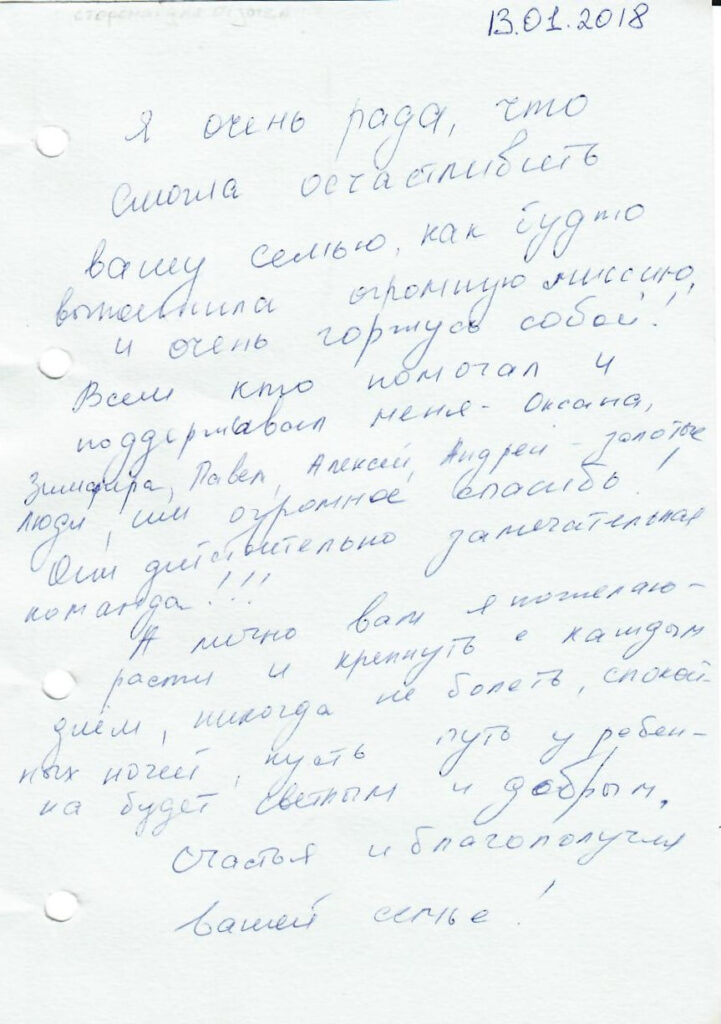 13.01.2018
Я очень рада, что
смогла осчастливить
вашу семью, как будто
выполнила огромную миссию,
и очень горжусь собой!!
Всем кто помогал и
поддерживал меня - Оксана,
Зимфира, Павел, Алексей, Андрей - золотые
люди, им огромное спасибо!
Они действительно замечательная
команда!!!
А лично вам я пожелаю -
расти и крепнуть с каждым
днём, никогда не болеть, спокой-
ных ночей, пусть путь у ребен-
ка будет светлым и добрым.
Счастья и благополучия
вашей семье!